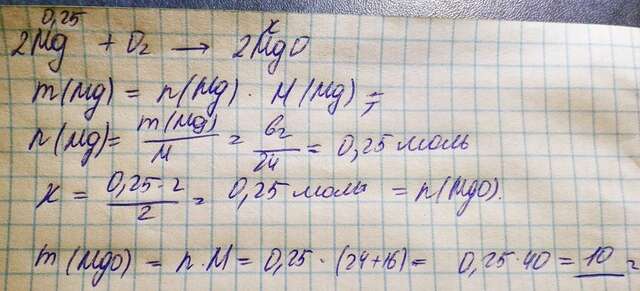 0,25 x
2Mg + O₂ → 2MgO
m(Mg) = n(Mg) · M(Mg) ;
n(Mg) = m(Mg)/M = 6г/24 = 0,25 моль
x = 0,25·2/2 = 0,25 моль = n(MgO).
m(MgO) = n·M = 0,25 · (24+16) = 0,25·40 = 10 г